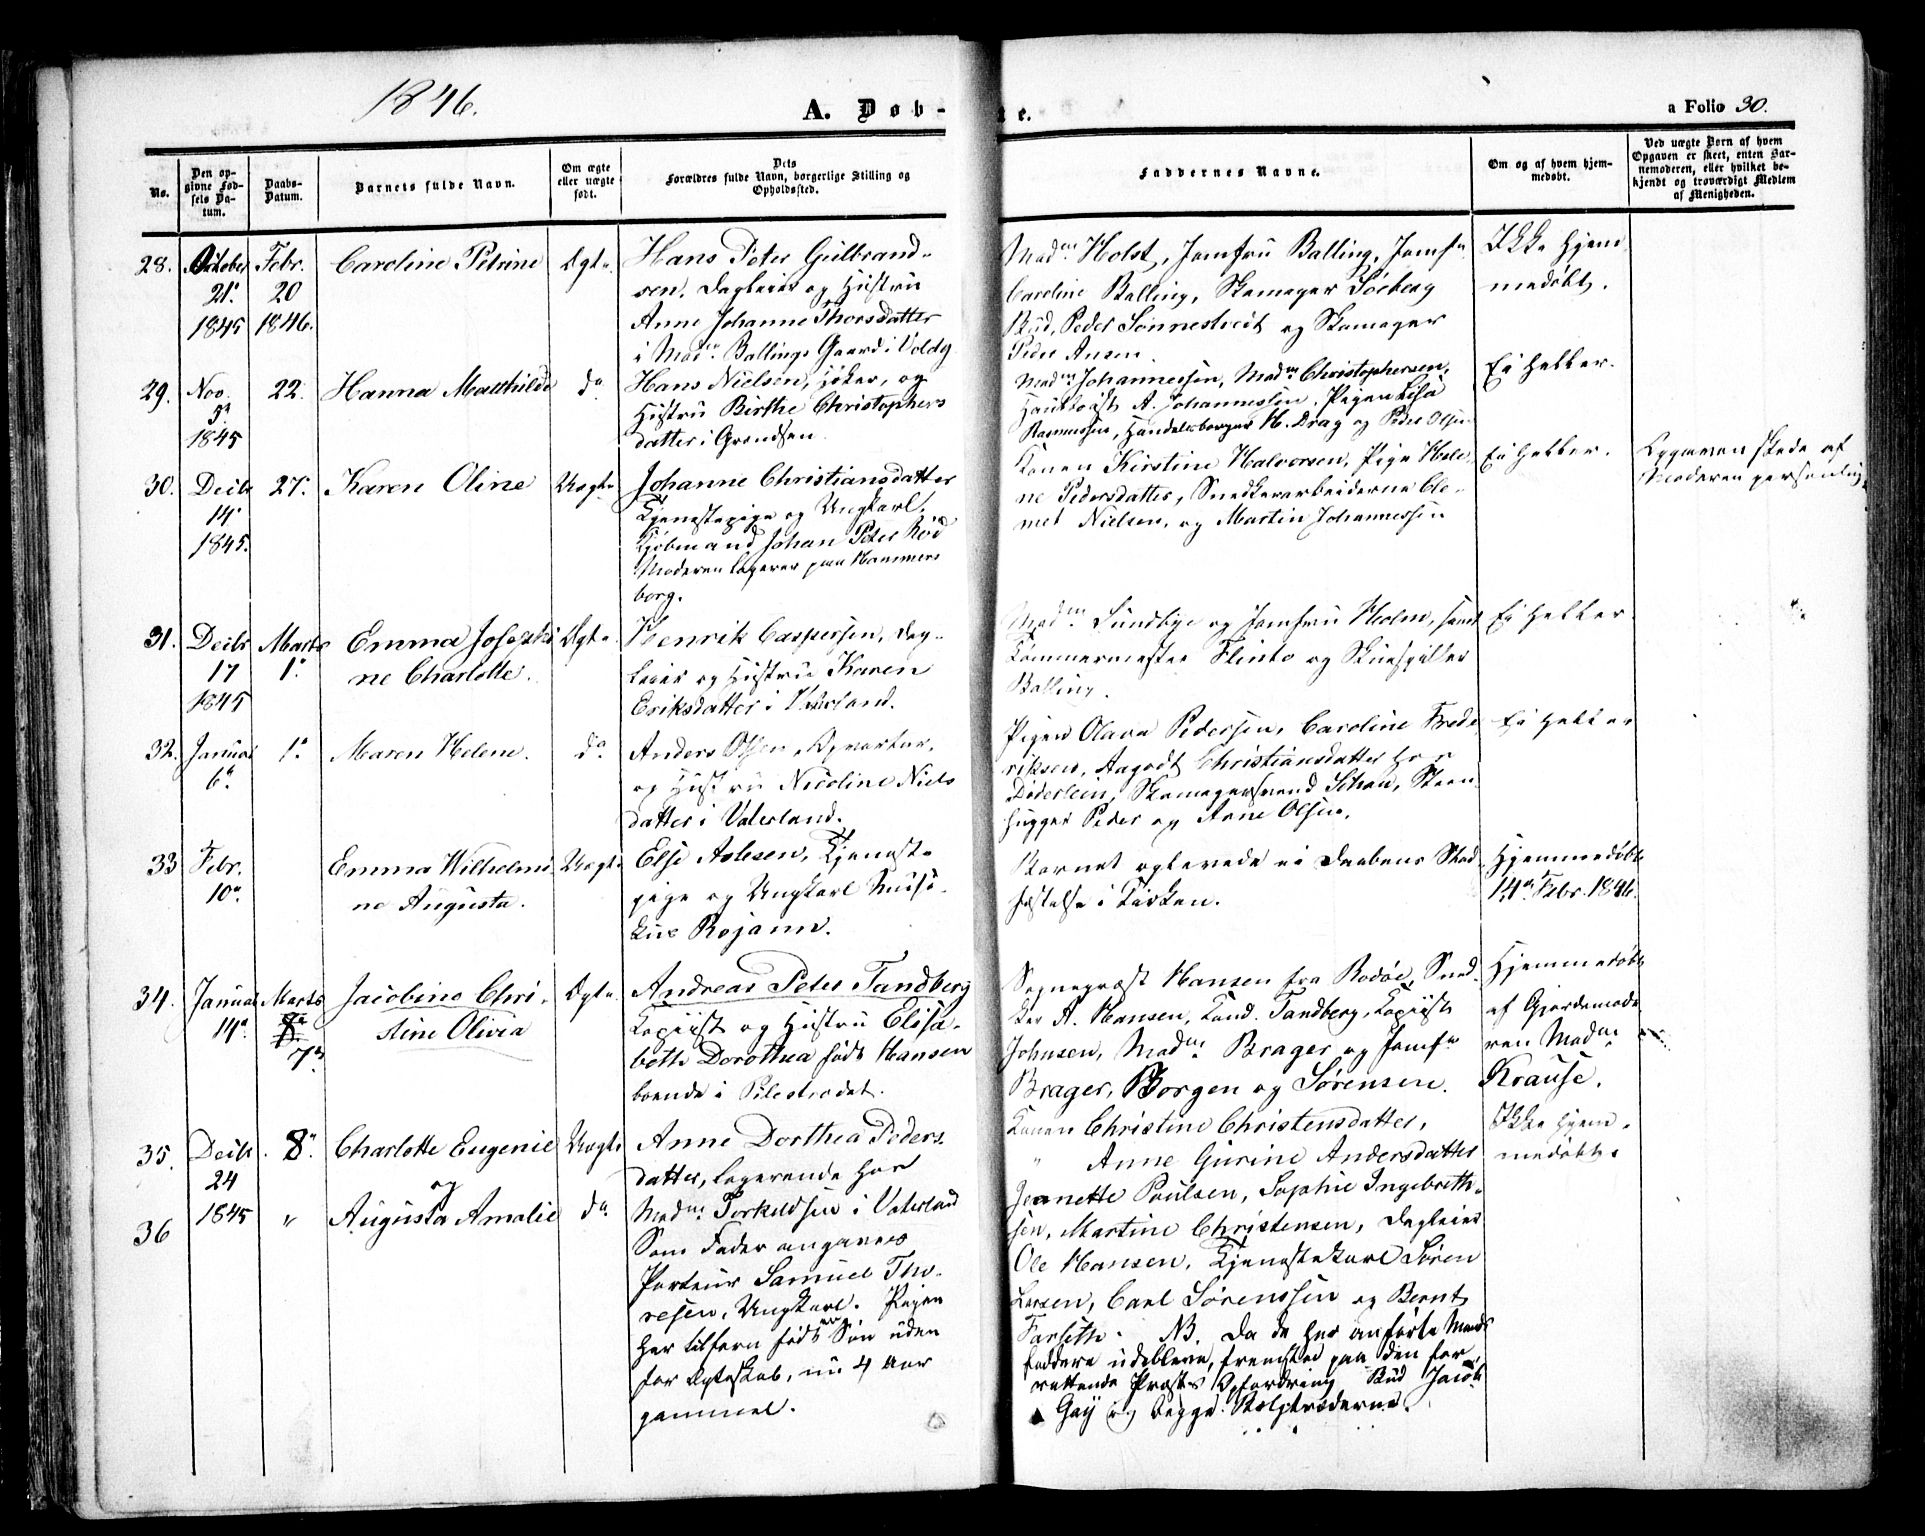 1846.
A. Døb-
te.
a Folio 30.
No.
Den op-
givne Fød-
sels Da-
tum.
Daabs-
Datum.
Barnets fulde Navn.
Om ægte
eller uægte
født.
Dets
Forældres fulde Navn, borgerlige Stilling og
Opholdssted.
Faddernes Navne.
Om og af hvem hjem-
medøbt.
Ved uægte Børn af hvem
Opgaven er skeet, enten Bar-
nemoderen, eller hvilket be-
kjendt og troværdigt Medlem
af Menigheden.
28.
October
21.
1845
Febr.
20
1846.
Caroline Petrine
Ægte
Hans Peter Gulbrand-
sen, Dagleier og Hustru
Anne Johanne Thorsdatter
i Madm. Ballings Gaard i Voldg
Madm. Holst, Jomfru Balling, Jomf.
Caroline Balling, Skomager Söeberg
Bud, Peder Sonnestvedt og Skomager
Peder Ansen.
Ikke hjem
medøbt.
29.
Nov.
5.
1845
22.
Hanna Matthilde
do
Hans Nielsen, Høker, og
Hustru Birthe Christophers
datter i Grændsen
Madm. Johannessen, Madm. Christophersen,
A. Johannessen, Pigen Lisa
Rasmussen, Handelsborger H. Drag og Peder Olsen
Ei heller.
30.
Decbr
14
1845.
27.
Karen Oline
Uægte
Johanne Christiansdatter
Tjenestepige og Ungkarl,
Kjøbmand Johan Peter Röd
Moderen logerer paa Hammers
borg.
Konen Kirstine Halvorsen, Pige Hele
ne Pedersdatter, Snedkerarbeiderne Cle-
met Nielsen, og Martin Johannessen
Ei heller.
Opgaven skede af
Moderen personlig
31.
Decbr
17
1845
Marts
1.
Emma Josephi
ne Charlotte.
Ægte
Henrik Caspersen, Dag-
leier og Hustru Karen
Eriksdatter i Vaterland.
Madm. Sundbye og Jomfru Holm, samt
Tømmermester Flinto og Skuespiller
Balling.
Ei heller
32.
Januar
6.
1.
Maren Helene.
do
Anders Olsen, Opvarter,
og Hustru Nicoline Niels
datter i Vaterland.
Pigen Olava Pedersen, Caroline Frede
riksen, Aagodt Christiansdatter hos
Döderlein, Skomagersvend Schou, Steen
hugger Peder og Arne Olsen.
Ei heller
33
Febr.
10.
Emma Wilhelmi
ne Augusta.
Uægte
Else Asbesen, Tjeneste
pige og Ungkarl Musi-
kus Bojann.
Barnet oplevede ei Daabens Stad
fæstelse i Kirken.
Hjemmedøbt
14. Febr. 1846.
34.
Januar
14.
Marts
7.
Jacobine Chri-
stine Olivia
Ægte
Andreas Peter Tandberg
Kopiist og Hustru Elisa-
beth Dorothea født Hansen
boende i Pilestrædet.
Sognepræst Hansen fra Bodöe, Sned
ker A. Hansen, Cand. Tandberg, Kopiist
Johnsen, Madm. Brager og Jomf.
Brager, Borgen og Sørensen.
Hjemmedøbt
af Gjordemode
ren Madm.
Krause.
35.
Decbr
24
1845
8.
Charlotte Eugenie
og
Uægte
Anne Dorthea Peders
datter, logerende hos
Madm. Torkeldsen i Vaterland
Som Fader angaves
Porteur Samuel Tho-
resen, Ungkarl. Pigen
har tilforn født en Søn uden
for Ægteskab, nu 4 Aar
gammel.
36
"
Augusta Amalie
do
Konen Christine Christensdatter,
" Anne Gurine Andersdatter
Jeanette Poulsen, Sophie Ingebreth-
sen, Martine Christensen, Dagleier
Ole Hansen, Tjenestekarl Søren
Larsen, Carl Sørenssen og Bernt
Farseth. NB. Da de her anførte Mands
faddere udebleve, fremstod paa den for
rettende Præsts Opfordring Bud Jacob
Gay og begge Bælgtræderne.
Ikke hjem
medøbt.